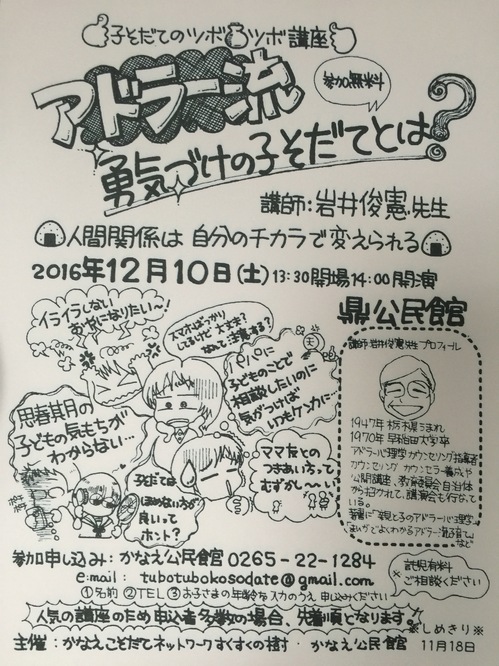 子そだてのツボツボ講座
アドラー流
参加無料
勇気づけの子そだてとは?
講師:岩井俊憲先生
人間関係は 自分のチカラで変えられる
2016年12月10日(土) 13:30開場14:00開演
鼎公民館
イライラしない
おやになりたい〜!
スマホばっかり
してるけど 大丈夫?
なんて注意する?
パパに
子どものことで
相談したいのに
気がつけば
いつもケンカに…
思春期の
子どもの気もちが
わからない…
ママ友との
つきあい方って
むずかし〜い!
子育ては
ほめない方が
良いって
ホント?
講師岩井俊憲先生プロフィール
1947年 栃木うまれ
1970年 早稲田大学卒
アドラー心理学カウンセリング指導者
カウンセリング カウンセラー養成や
公開講座、教育委員会 自治体
から招かれて、講演会も行なって
いる。
著書に「親と子のアドラー心理学」
「まんがでよくわかるアドラー流子育て」など
参加申し込み:かなえ公民館 0265-22-1284
e.mail: tubotubokosodate@gmail.com
①名前 ②TEL ③お子さまの年齢を入力のうえ 申し込みください
※託児有料
ご相談ください
人気の講座のため申込者多数の場合、先着順となります。
※しめきり※
主催:かなえこそだてネットワークすくすくの樹・かなえ公民館 11月18日